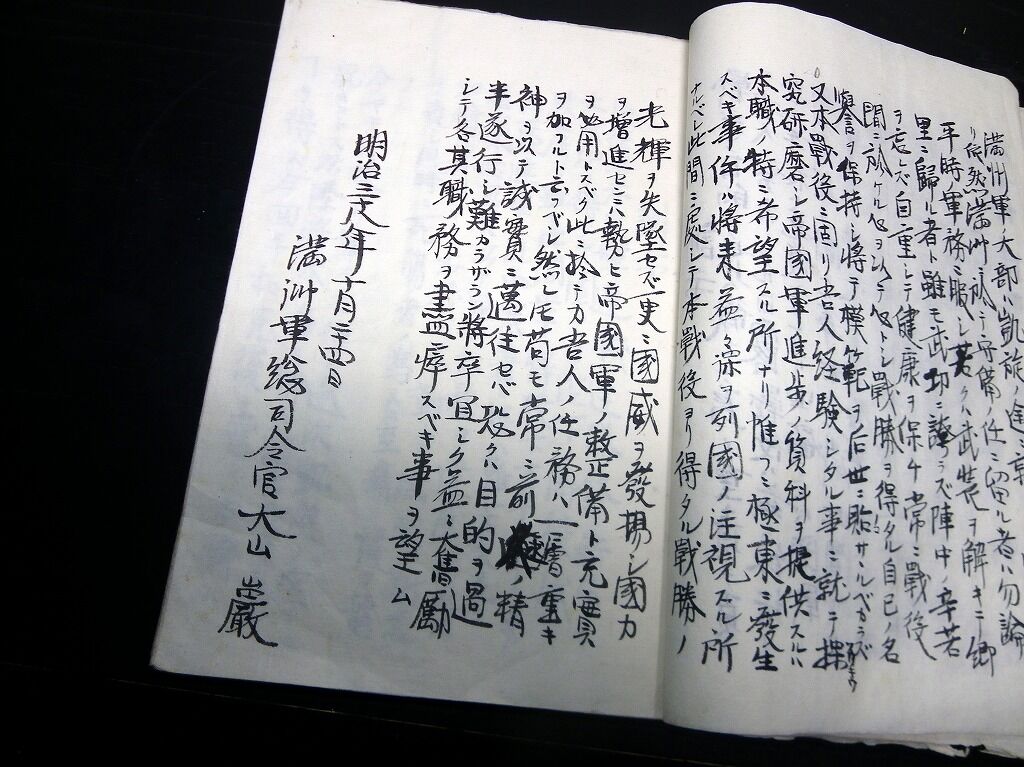 満州軍ノ大部ハ凱旋ノ途ニ
リ依然満洲ニ於テ守備ノ任ニ留ル者ハ勿論
平時ノ軍務ニ服シ若クハ武装ヲ解キテ郷
里ニ歸ル者ト雖モ武功ニ誇ラズ陣中ノ辛苦
ヲ忘レズ自重シテ健康ヲ保チ常ニ戰後
間ニ於ケル心ヲ以テ心トシ戰勝ヲ得タル自己ノ名
譽ヲ保持シ將テ模範ヲ后世ニ貽サヾルベカラズ
又本戰役ニ因リ吾人経験シタル事ニ就テ探
究研磨シ帝國軍進歩ノ資料ヲ提供スルハ
本職ノ特ニ希望スル所ナリ惟フニ極東ニ發生
スベキ事件ハ將来益々深ヲ列國ノ注視スル所
ナルベシ此間ニ處シテ本戰役ヨリ得タル戰勝ノ
光輝ヲ失墜セズ更ニ國威ヲ發揚シ國力
ヲ増進セニハ勢ヒ帝國軍ノ整備ト充實
ヲ必用トスベク此ニ於テカ吾人ノ任務ハ一層重キ
ヲ加フルト云フベシ然レ圧苟モ常ニ前ノ精
神ヲ以テ誠實ニ邁往セバ恐クハ目的ヲ過
半遂行シ難カラザラン將卒冝シク益々奮勵
シテ各其職務ヲ盡瘁スベキ事ヲ望ム
明治三十八年十月二十四日
満洲軍総司令官大山巌